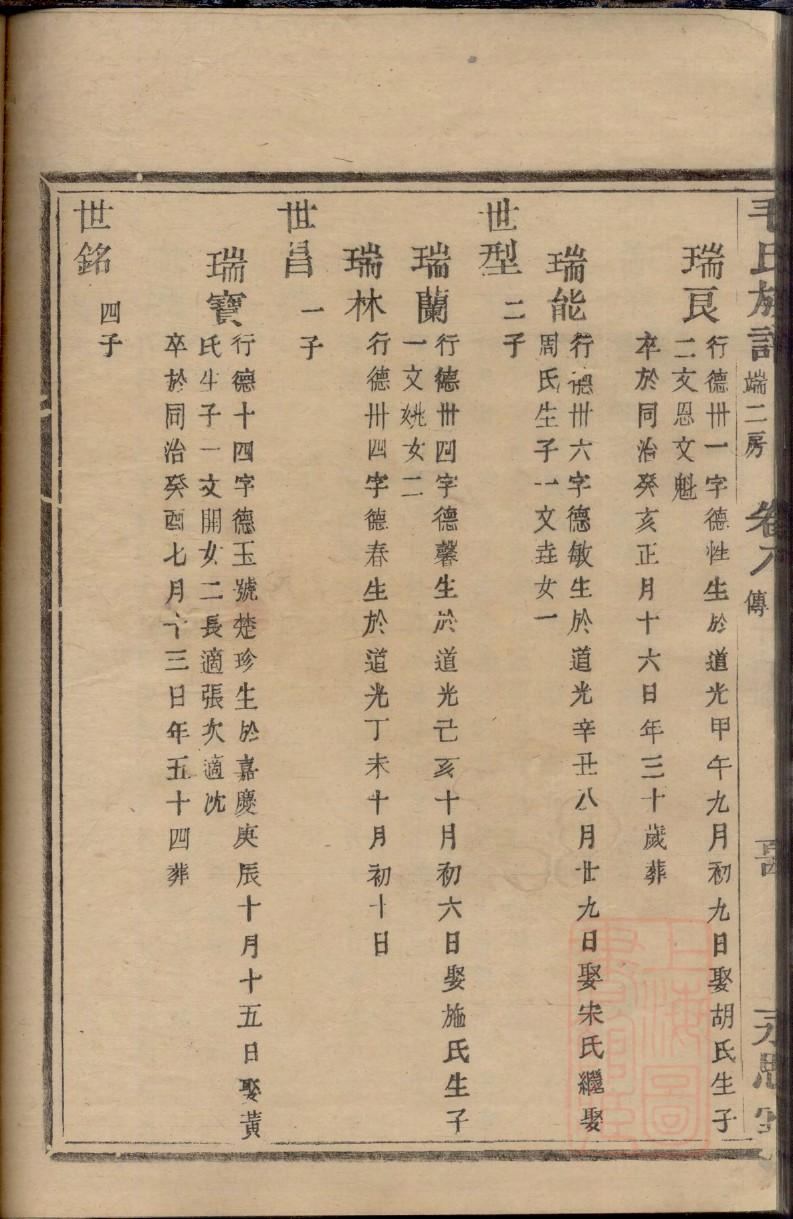 毛氏族譜 端二房 卷八 傳 永思堂
瑞良 行德卅一字德性生於道光甲午九月初九日娶胡氏生子
二文恩文魁
卒於同治癸亥正月十六日年三十歲葬
瑞能 行德卅六字德敏生於道光辛丑八月廿九日娶宋氏繼娶
周氏生子一文垚女一
世型 二子
瑞蘭 行德卅四字德馨生於道光己亥十月初六日娶施氏生子
一文姚女二
瑞林 行德卅四字德春生於道光丁未十月初十日
世昌 一子
瑞寶 行德十四字德玉號楚珍生於嘉慶庚辰十月十五日娶黃
氏生子一文開女二長適張次適沈
卒於同治癸酉七月十三日年五十四葬
世銘 四子
上海圖
書館藏